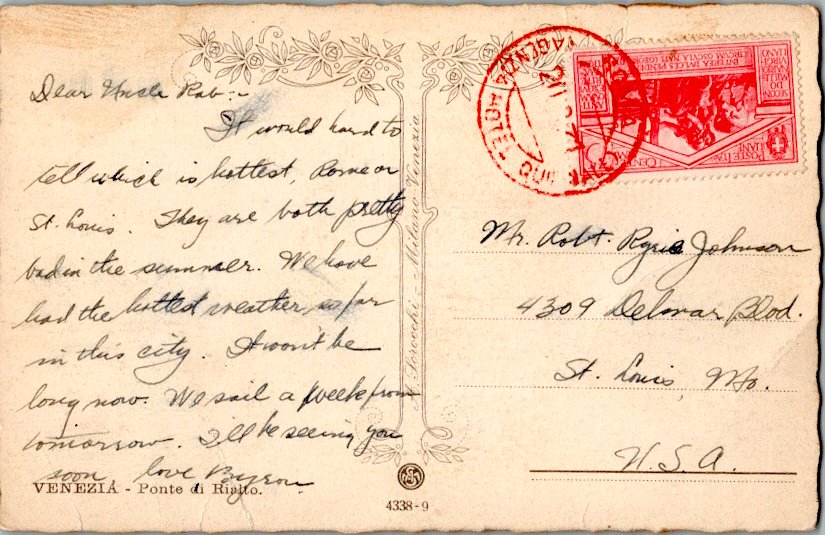 Dear Uncle Rob:-
It would hard to
tell which is hottest, Rome or
St. Louis. They are both pretty
bad in the summer. We have
had the hottest weather, so far
in this city. It won't be
long now. We sail a week from
tomorrow. I'll be seeing you
soon love Byron
VENEZIA - Ponte di Rialto.
A. Scrocchi - Milano Venezia
4338-9
Mr. Robt. Ryrie Johnson
4309 Delmar Blvd.
St. Louis, Mo.
U.S.A.
AGENZIA
HOTEL QUI
POSTE ITALIANE
CENT
INTEREA DULCES PENDENT
CIRCUM OSCULA NATI (GEORG.